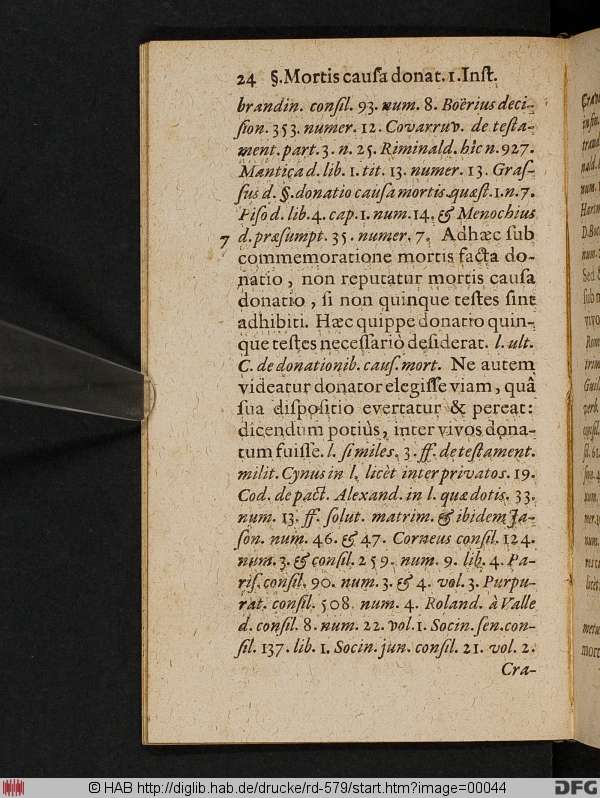 24 §. Mortis cauſa donat. 1. Inſt.
brandin. conſil. 93. num. 8. Boërius deci-
ſion. 353. numer. 12. Covarruv. de teſta-
ment. part. 3. n. 25. Riminald. hîc n. 927.
Mantica d. lib. 1. tit. 13. numer. 13. Graſ-
ſus d. §. donatio cauſa mortis quæſt. 1. n. 7.
Piſo d. lib. 4. cap. 1. num. 14. & Menochius
7 d. præſumpt. 35. numer. 7. Adhæc ſub
commemoratione mortis facta do-
natio, non reputatur mortis cauſa
donatio, ſi non quinque teſtes ſint
adhibiti. Hæc quippe donatio quin-
que teſtes neceſſariò deſiderat. l. ult.
C. de donationib. cauſ. mort. Ne autem
videatur donator elegiſſe viam, quâ
ſua diſpoſitio evertatur & pereat:
dicendum potiùs, inter vivos dona-
tum fuiſſe. l. ſi miles. 3. ff. de teſtament.
milit. Cynus in l. licèt inter privatos. 19.
Cod. de pact. Alexand. in l. quæ dotis. 33.
num. 13. ff. ſolut. matrim. & ibidem Ja-
ſon. num. 46. & 47. Corneus conſil. 124.
num. 3. & conſil. 259. num. 9. lib. 4. Pa-
riſ. conſil. 90. num. 3. & 4. vol. 3. Purpu-
rat. conſil. 508. num. 4. Roland. à Valle
d. conſil. 8. num. 22. vol. 1. Socin. ſen. con-
ſil. 137. lib. 1. Socin. jun. conſil. 21. vol. 2.
Cra-
© HAB http://diglib.hab.de/drucke/rd-579/start.htm?image=00044
DFG